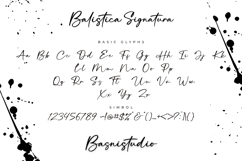 Balistica Signatura
BASIC GLYPHS
Aa Bb Cc Dd Ee Ff Gg Hh Ii Jj Kk
Ll Mm Nn Oo Pp
Qq Rr Ss Tt Uu Vv Ww
Xx Yy Zz
SYMBOL
Basnistudio